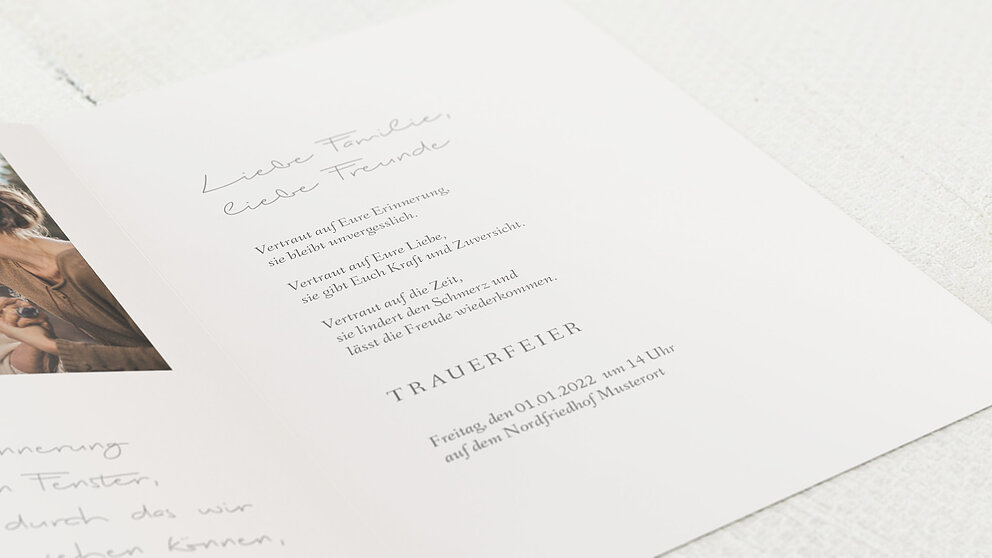 nnerung
n Fenster,
durch das wir
sehen können,
Liebe Familie,
liebe Freunde
Vertraut auf Eure Erinnerung,
sie bleibt unvergesslich.
Vertraut auf Eure Liebe,
sie gibt Euch Kraft und Zuversicht.
Vertraut auf die Zeit,
sie lindert den Schmerz und
lässt die Freude wiederkommen.
TRAUERFEIER
Freitag, den 01.01.2022 um 14 Uhr
auf dem Nordfriedhof Musterort